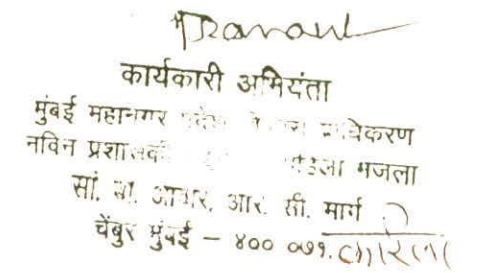 कार्यकारी अभियंता
मुंबई महानगर प्रदेश विकास प्राधिकरण
नविन प्रशासकीय पहिला मजला
सां. बा. आवार, आर. सी. मार्ग
चेंबुर मुंबई – ४०० ०७१.